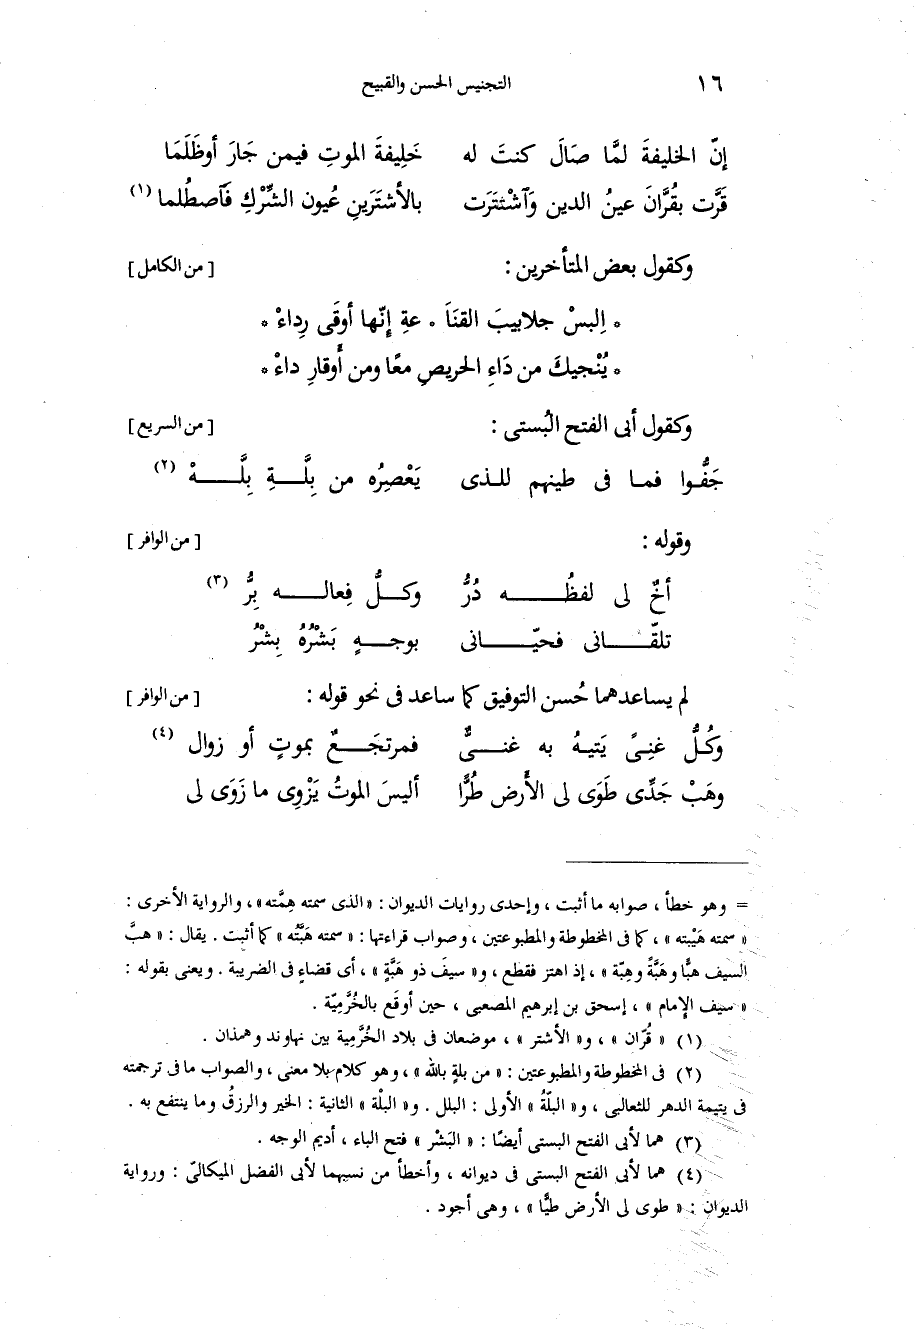 ١٦ التجنيس الحسن والقبيح
إنّ الخليفةَ لمَّا صَالَ كنتَ له خَلِيفةَ الموتِ فيمن جَارَ أوظَلَمَا
قَرَّت بقُرَّانَ عينُ الدين وَٱشْتَتَرَت بالأشتَرَينِ عُيون الشِّرْكِ فَٱصطُلما (١)
وكقول بعض المتأخرين : [ من الكامل ]
* اِلبسْ جلابيبَ القنَاَ * عةِ إنّها أوقَى رِداءْ *
* يُنْجيكَ من دَاءِ الحريصِ معًا ومن أُوقارِ داءْ *
وكقول أبى الفتح البُستى : [ من السريع ]
جَفُّوا فمـا فى طينهم للـذى يَعْصِرُه من بِلَّـــةِ بِلَّـــــهْ (٢)
وقوله : [ من الوافر ]
أخٌ لى لفظُـــــــه دُرُّ وكـــلُّ فِعالـــــه بِرُّ (٣)
تلقّـــــانى فحيّـــــانى بوجـــهٍ بَشْرُهُ بِشْرُ
لم يساعدهما حُسن التوفيق كما ساعد فى نحو قوله : [ من الوافر ]
وكُـلُّ غنِىً يَتيهُ به غنـــىٌّ فمرتجَـــعٌ بموتٍ أو زوال (٤)
وهَبْ جَدِّى طَوَى لى الأَرض طُرًّا أليسَ الموتُ يَزْوِى ما زَوَى لى
= وهو خطأ ، صوابه ما أثبت ، وإحدى روايات الديوان : « الذى سمته هِمَّته » ، والرواية الأخرى :
« سمته هَيْبته » ، كما فى المخطوطة والمطبوعتين ، وصواب قراءتها : « سمته هَبَّتُه » كما أثبت . يقال : « هبَّ
السيف هبًّا وهَبَّةً وهِبّة » ، إذ اهتز فقطع ، و« سيفَ ذو هَبَّةٍ » ، أى قضاءٍ فى الضريبة . ويعنى بقوله :
« سيف الإمام » ، إسحق بن إبرهيم المصعبى ، حين أوقَع بالخُرَّميّة .
(١) « قُرّان » ، و« الأشتر » ، موضعان فى بلاد الخُرَّمية بين نهاوند وهمذان .
(٢) فى المخطوطة والمطبوعتين : « من بلةٍ بالله » ، وهو كلام بلا معنى ، والصواب ما فى ترجمته
فى يتيمة الدهر للثعالبى ، و« البلّةُ » الأولى : البلل . و« البلْة » الثانية : الخير والرزقُ وما ينتفع به .
(٣) هما لأبى الفتح البستى أيضًا : « البَشْر » فتح الباء ، أديم الوجه .
(٤) هما لأبى الفتح البستى فى ديوانه ، وأخطأ من نسبهما لأبى الفضل الميكالىّ : ورواية
الديوان : « طوى لى الأرض طيًّا » ، وهى أجود .